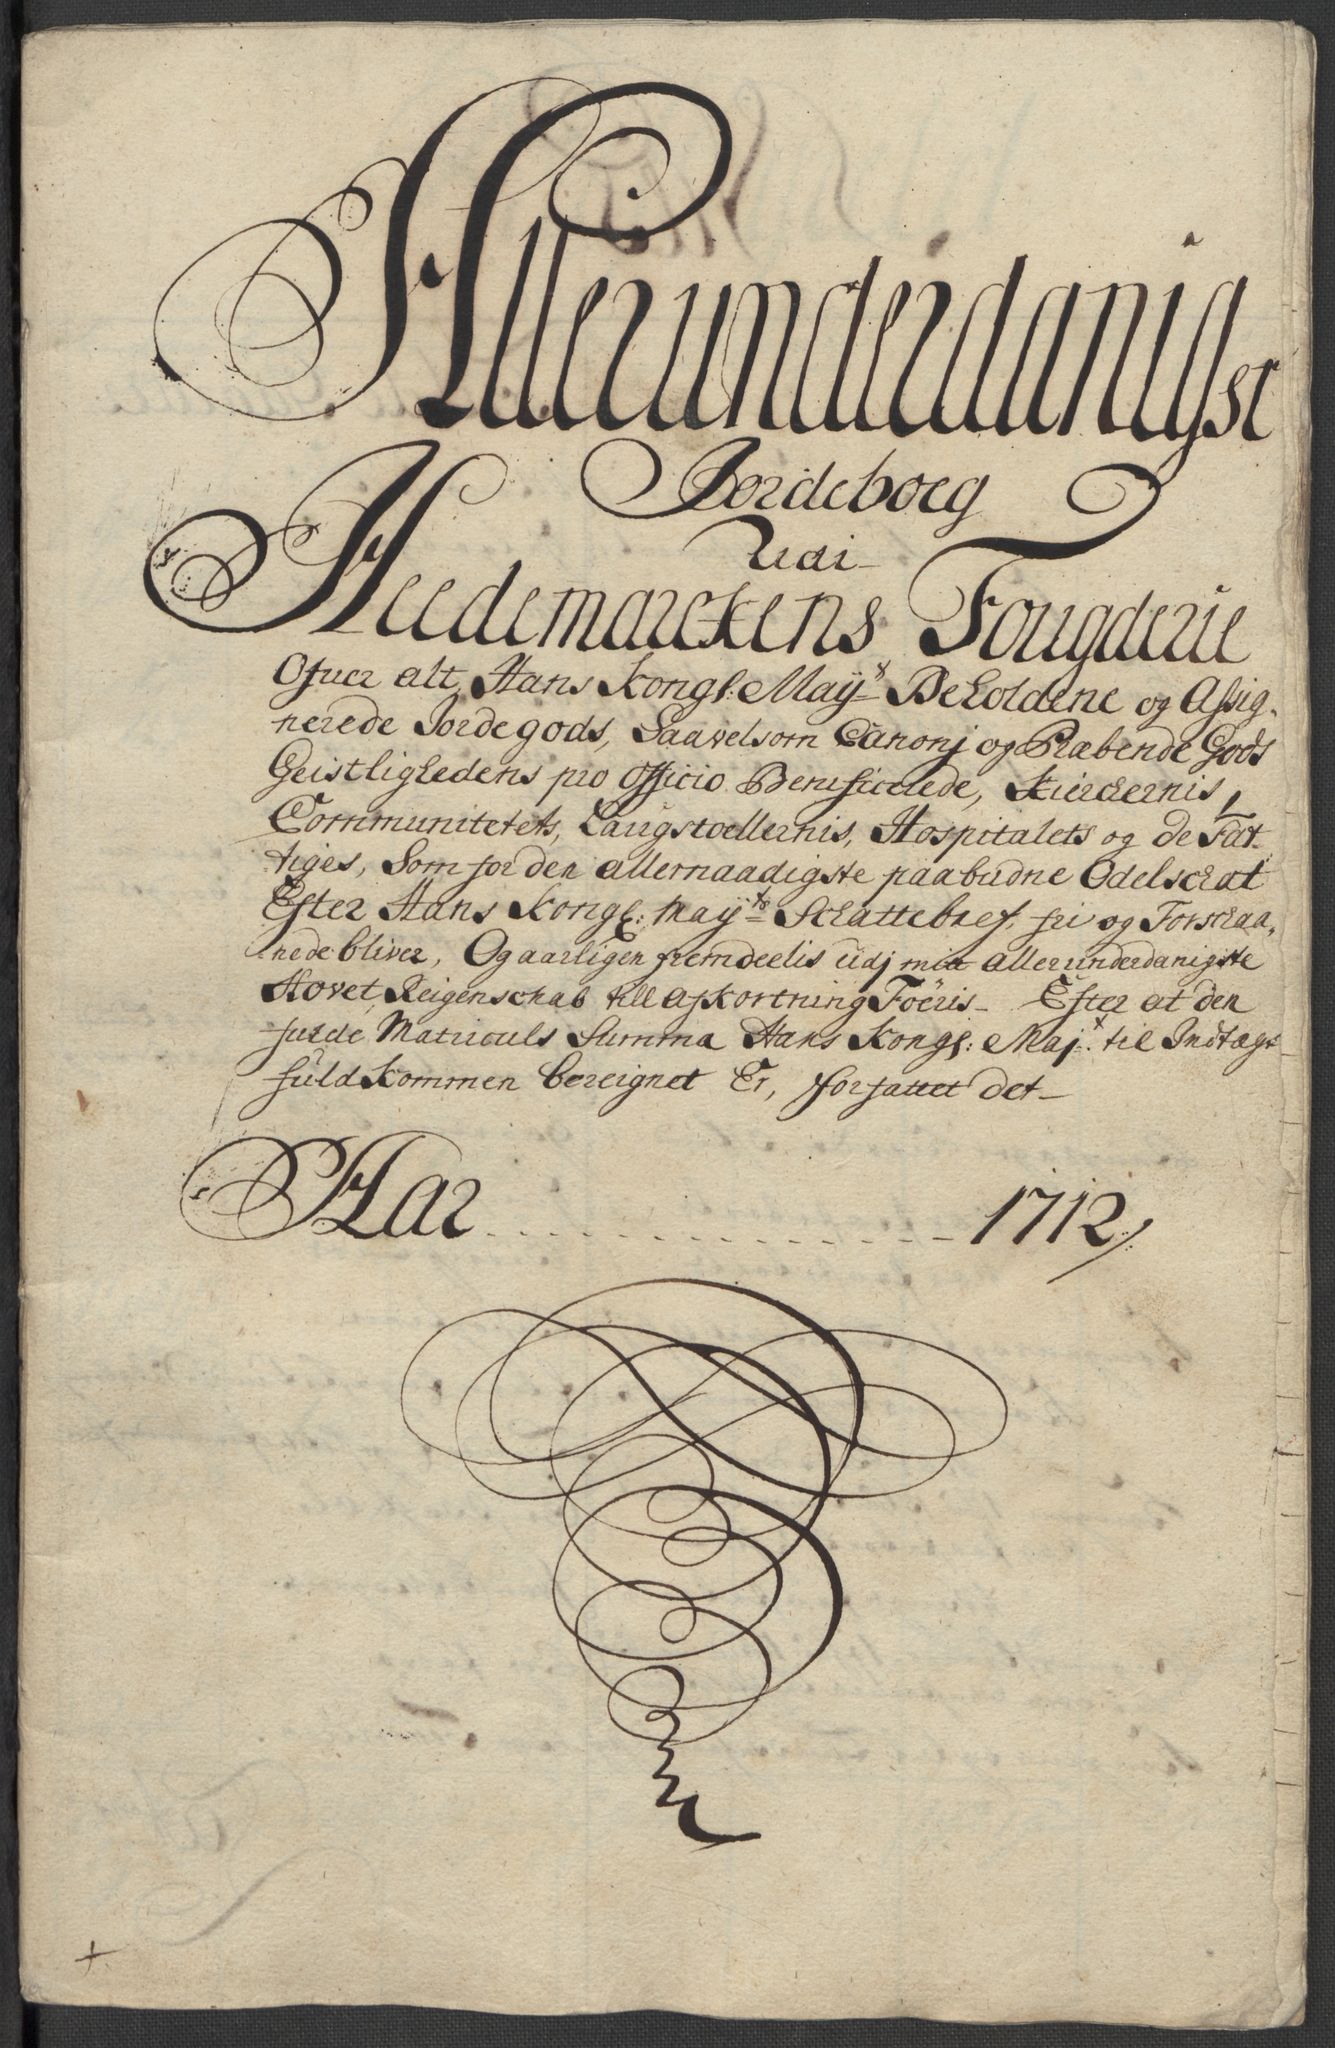 Allerunderdanigst
Jordeboeg
Udi
Heedemarckens Fougderie
Ofuer alt Hans Kongl: Mayts Beholdene og Assig-
nerede Jordegods, Saavelsom Canonj og Præbende Gods
Geistlighedens pro Officio Beneficerede, Kierckernis,
Communitetets, Laugstoellernis, Hospitalets og de Fat-
tiges, Som for den allernaadigste paabudne Odelschat
Efter Hans Kongl: Mayts Schattebref, fri og Forschaa-
nede bliver, Og aarligen fremdeelis udj mit allerunderdanigste
Hovet Reigenschab till afkortning Föeris - Efter at den
fulde Matriculs Summa Hans Kongl: Majt til Indtægt
fuldkommen bereignet Er, forfattet det -
Aar 1712